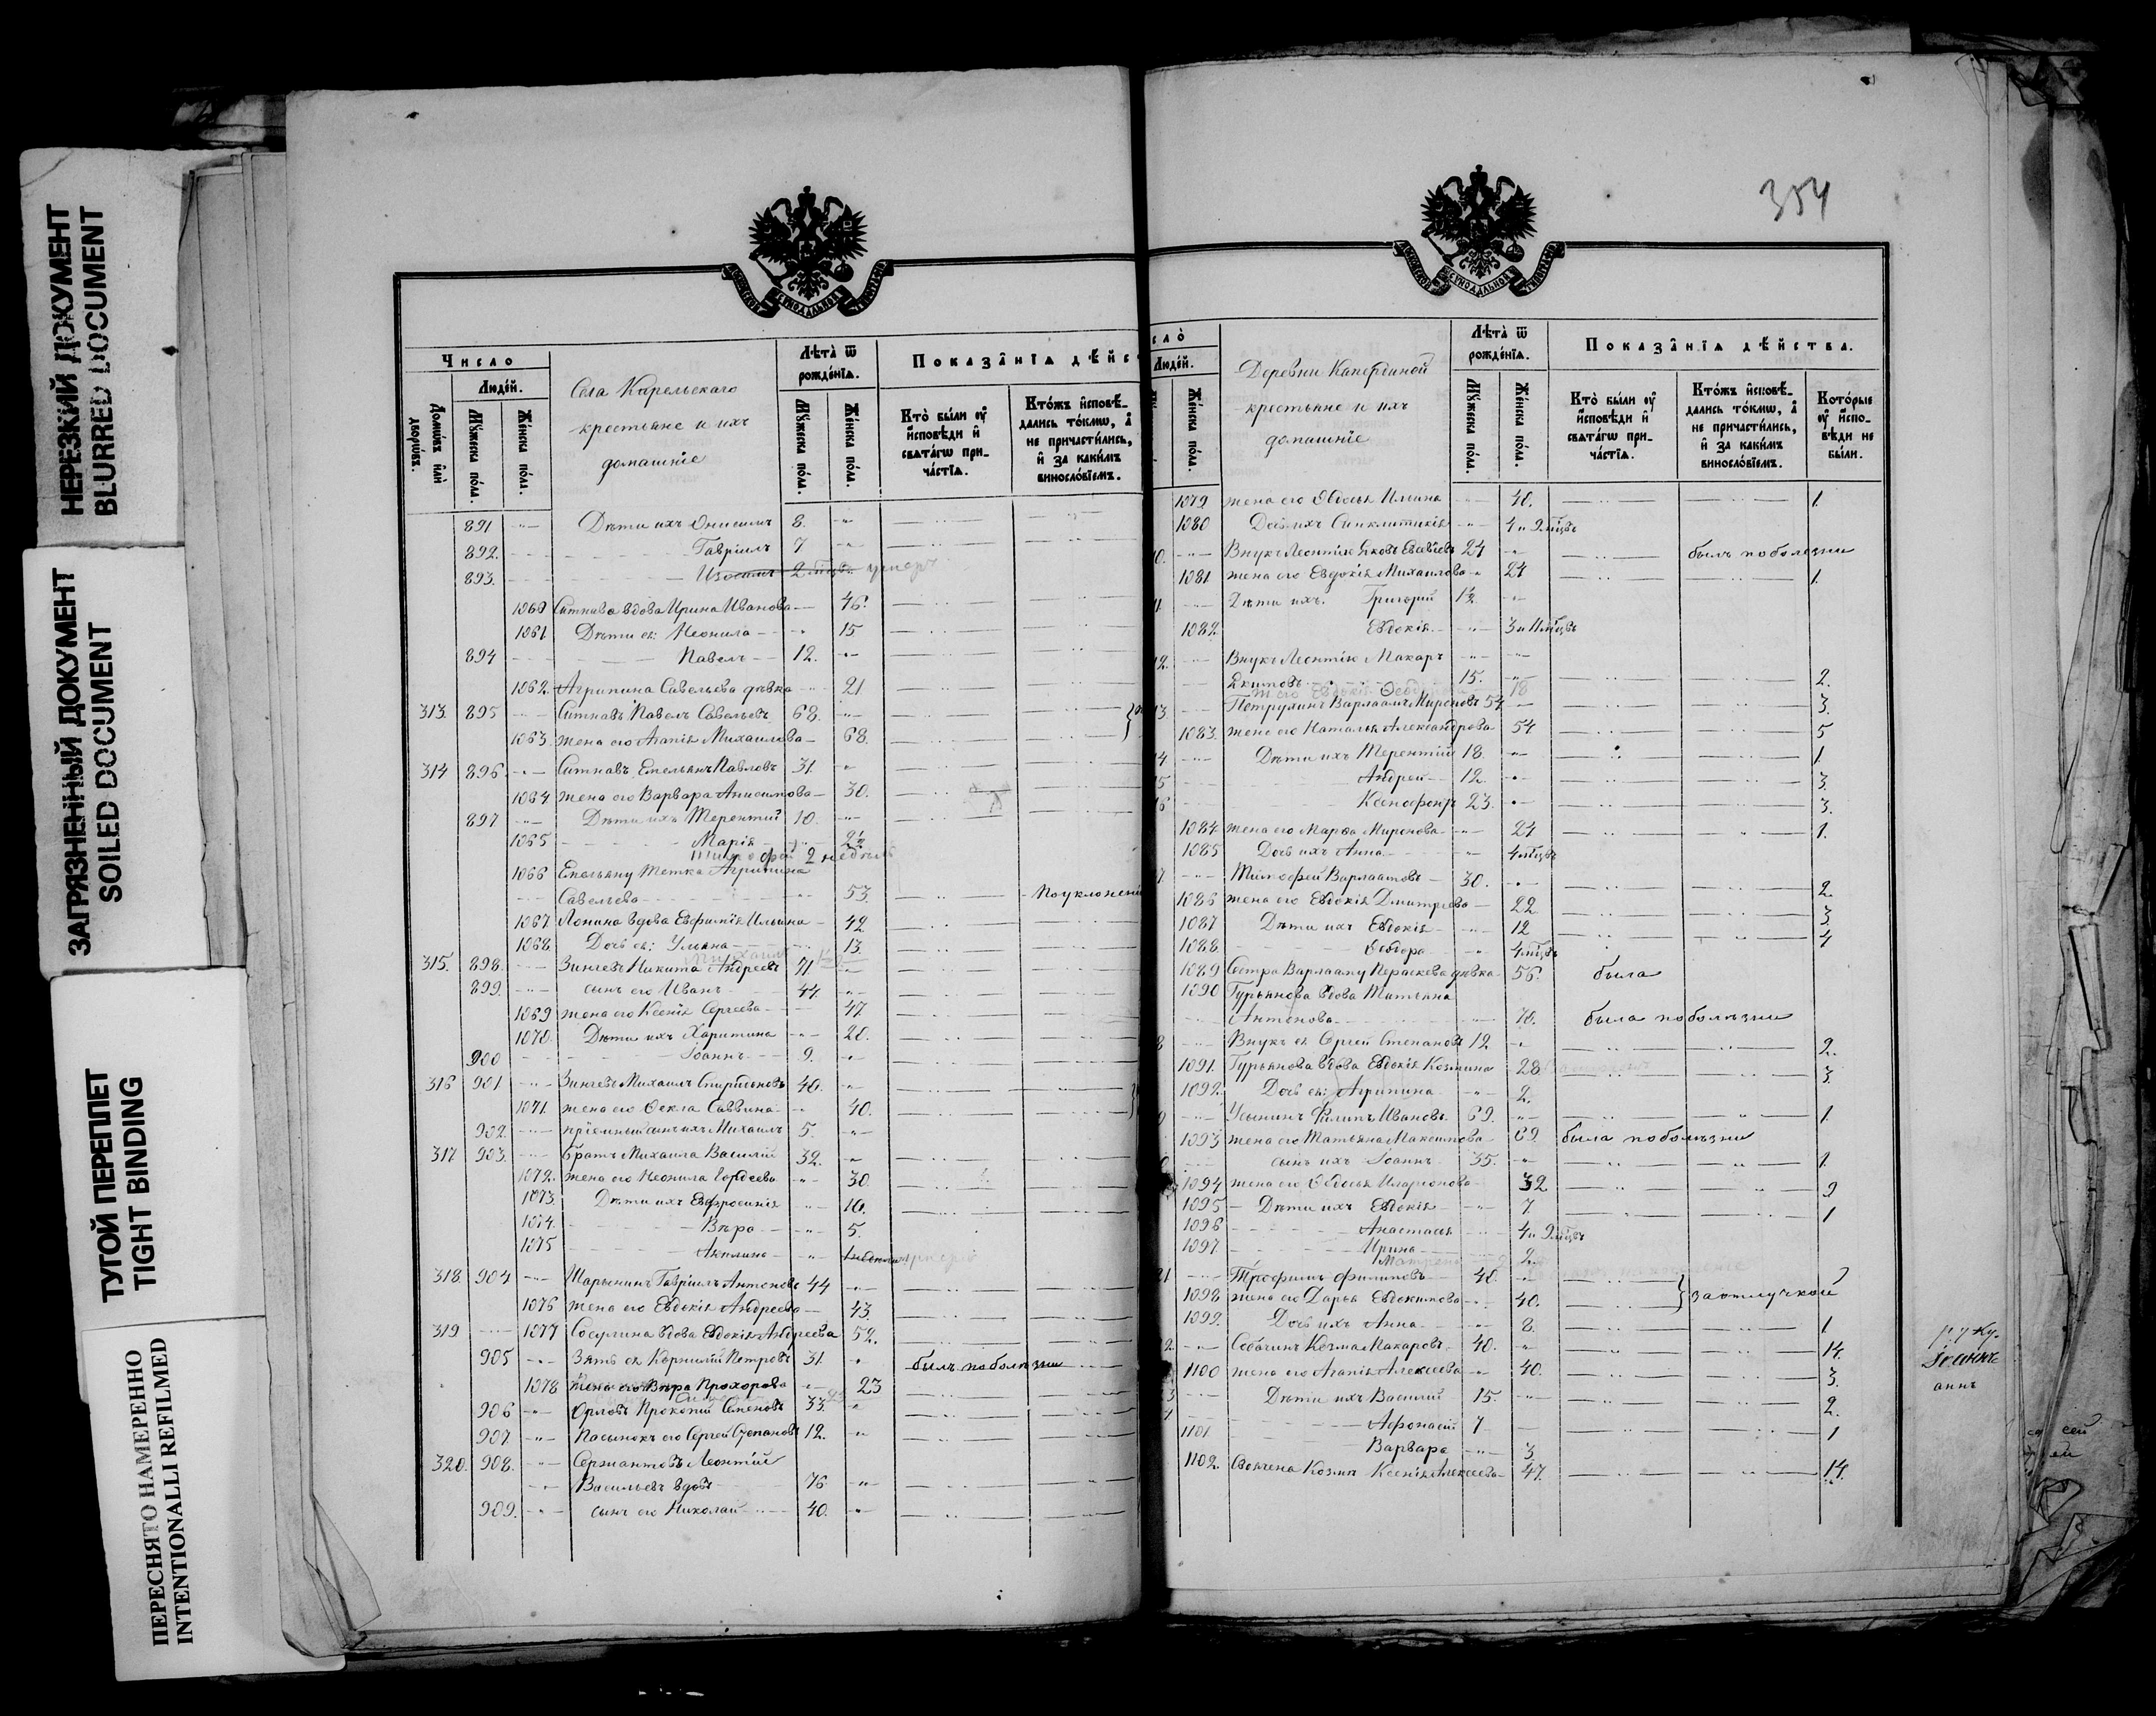 НЕРЕЗКИЙ ДОКУМЕНТ
BLURRED DOCUMENT
ЗАГРЯЗНЕННЫЙ ДОКУМЕНТ
SOILED DOCUMENT
ТУГОЙ ПЕРЕПЛЕТ
TIGHT BINDING
ПЕРЕСНЯТО НАМЕРЕННО
INTENTIONALLI REFILMED
Число
Людей.
Домѡвъ или дворѡвъ.
Мꙋжеска пола.
Женска пола.
Села Карельскаго
крестьяне и ихъ
домашніе
Лѣта ѿ рожденїѧ.
Мꙋжеска пола.
Женска пола.
Показанїѧ дѣйс
Кто были ᲂу҆ исповѣди и свѧтагѡ причастїѧ.
Ктожъ исповѣдались токмѡ, а не причастились, и за какимъ винословїемъ.
891 Дѣти ихъ Онисимъ 8.
892. Гавріилъ 7
893. Изосимъ 2 мѣсяца умеръ
1060 Ситнова вдова Ирина Иванова 46.
1061 Дѣти ея: Неонила 15
894 Павелъ 12.
1062. Агрипина Савельева дѣвка 21
313. 895 Ситновъ Павелъ Савельевъ 68.
1063. жена его Агапія Михаилова 68.
314 896. Ситновъ Емельянъ Павловъ 31.
1064 жена его Варвара Анисимова 30.
897 Дѣти ихъ Терентий 10.
1065 Марія 2½
Тимофей 2 недѣль
1066 Емельяну тетка Агрипина
Савельева 53. По уклонені
1067 Лонина вдова Евфимія Ильина 42
1068 Дочь ея: Ульяна 13.
315. 898. Зинчевъ Никита Андреевъ 71
899. сынъ его Иванъ 44.
1069 жена его Ксенія Сергеева 47
1070. Дѣти ихъ Харитина 20.
900 Іоаннъ 9.
316 901. Зинчевъ Михаилъ Спиридоновъ 40.
1071. жена его Ѳекла Саввина 40.
902. пріемный сынъ ихъ Михаилъ 5.
317 903. братъ Михаила Василій 32.
1072. жена его Неонила Гордеева 30
1073. Дѣти ихъ Евфросинія 10.
1074. Вѣра 5.
1075 Акилина
318 904 Шарынинъ Гавріилъ Антоновъ 44
1076 жена его Евдокія Андреева 43.
319 1077 Сосулина вдова Евдокія Андреева 52.
905 Зять ея Корнилій Петровъ 31. былъ по болѣзни
1078 Жена его Вѣра Прохорова 23
906 Орловъ Прокопій Семеновъ 33.
907 Пасынокъ его Сергей Степановъ 12.
320. 908. Сержантовъ Леонтій
Васильевъ вдовъ 76
909. сынъ его Николай 40.
354
сло
Людей.
Женска пола.
Деревни Кашердиной
крестьяне и ихъ
домашніе
Лѣта ѿ рожденїѧ.
Мꙋжеска пола.
Женска пола.
Показанїѧ дѣйства.
Кто были ᲂу҆ исповѣди и свѧтагѡ причастїѧ.
Ктожъ исповѣдались токмѡ, а не причастились, и за какимъ винословїемъ.
Которые ᲂу҆ исповѣди не были.
1079 жена его Ѳедосья Ильина 40. 1.
1080 Дочь ихъ Синклитикія 4 и 9 мѣсцъ
0. Внукъ Леонтія Яковъ Евсевіевъ 24 былъ по болезни
1081 жена его Евдокія Михаилова 24 1.
1. Дѣти ихъ. Григорій 1½
1082. Евдокія 3 и 11 мѣсцъ
12. Внукъ Леонтія Макаръ
Екимовъ 15. 2.
ж его Евдокія 18
13. Петрухинъ Варлаамъ Мироновъ 54 3.
1083. жена его Наталья Александрова 54 5
4 Дѣти ихъ Терентій 18. 1.
5 Андрей 12. 3.
16 Ксенофонтъ 23. 3.
1084 жена его Марѳа Миронова 24 1.
1085 Дочь ихъ Анна 4 мѣсцъ
7 Тимофей Варлаамовъ 30. 2.
1086 жена его Евдокія Дмитріева 22 3
1087 Дѣти ихъ Евдокія 12 4
1088 Ѳедора 4 мѣсцъ
1089 Сестра Варлааму Пераскева дѣвка 56. была
1090 Гурьянова вдова Татьяна
Антонова 70. была по болѣзни
8 Внукъ ея Сергей Степановъ 12 2.
1091. Гурьянова вдова Евдокія Козмина 28 3.
1092. Дочь ея: Агрипина 2.
9 Усынинъ Филипъ Ивановъ 69. 1.
1093 жена его Татьяна Максимова 69. была по болѣзни
сынъ ихъ Іоаннъ 35. 1.
1094 жена его Ѳедосья Иларионова 32 2
1095 Дѣти ихъ Евдокія 7 1
1096 Анастасья 4 и 9 мѣсцъ
1097 Ирина 2.
21 Трофимъ Филиповъ 40.
1098 жена его Дарья Евдокимова 40. за отлучкой
1099. Дочь ихъ Анна 8. 1
2. Собачинъ Козма Макаровъ 40. 14.
1100 жена его Агапія Алексеева 40. 3.
3 Дѣти ихъ Василій 15. 2.
4 Афонасій 7 1
1101 Варвара 3
1102. Своячена Козмы Ксенія Алексеева 47. 14.
руку.
Іоаннъ
аннъ
сей